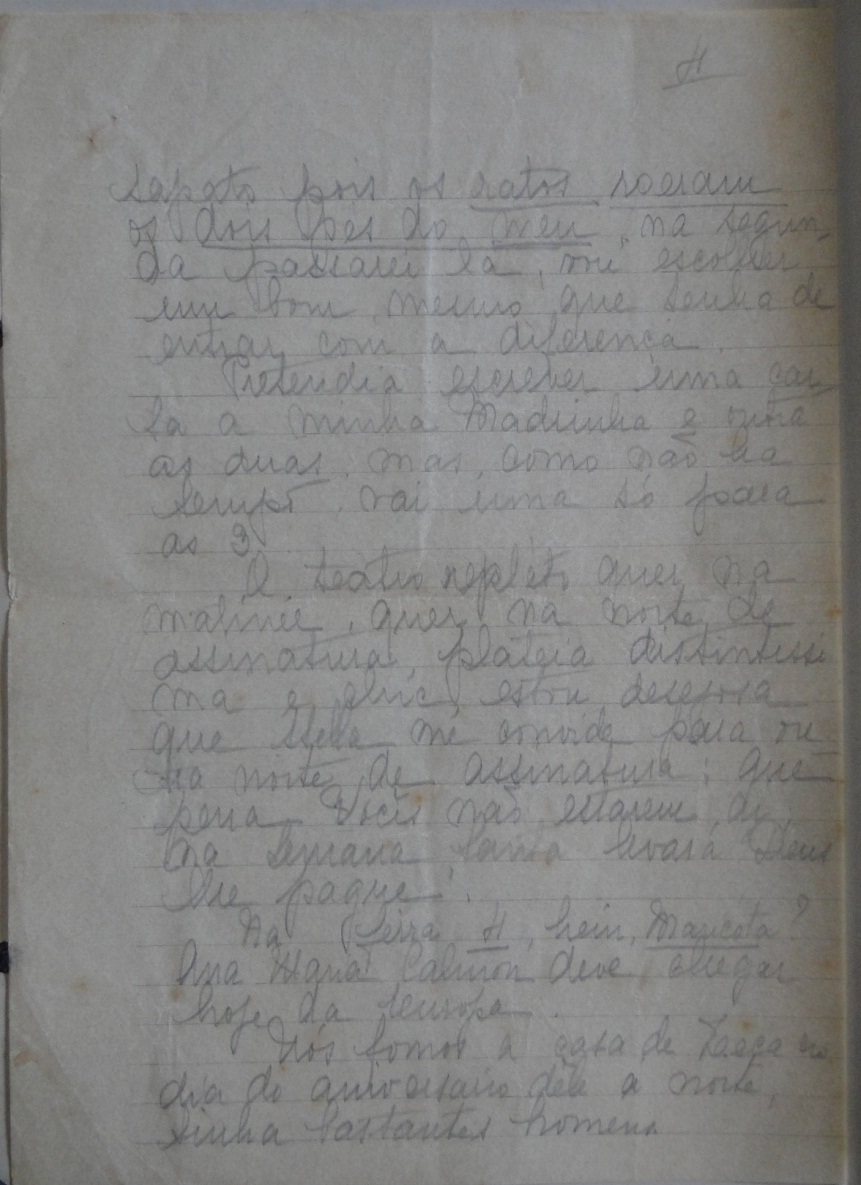 4
sapato pois os ratos roeram
os dois pés do meu, na segun-
da passarei lá, vou escolher
um bom mesmo que tenha de
entrar com a diferença.
Pretendia escrever uma car-
ta a minha Madrinha e uma
as duas, mas, como não ha
tempo, vai uma só para
as 3.
O teatro repleto quer na
matinée, quer na noite de
assinatura, platéia distintissi
ma e chic, estou desejosa
que me convide para ou-
tra noite de assinatura; que
pena Vocês não estarem aqui
na Semana Santa levará Deus
lhe pague!
Na feira H, hein, Maricota?
Ana Maria Calmon deve chegar
hoje da Europa.
Nós fomos a casa de no
dia do aniversario dele a noite,
tinha bastantes homens